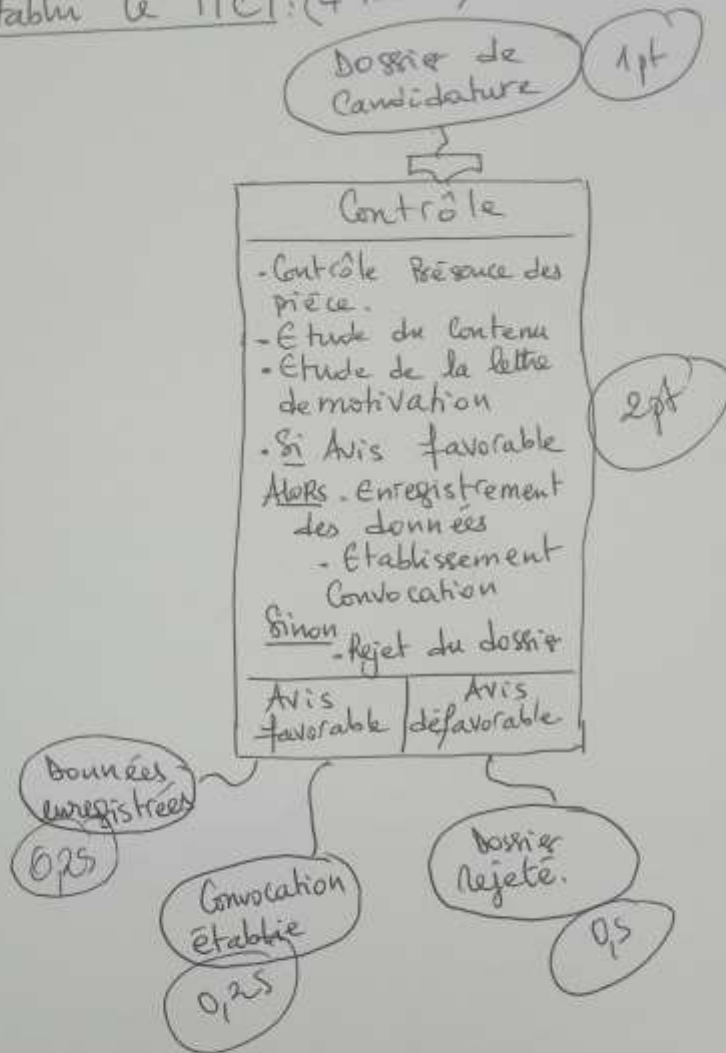 le MCT: (4
Dossier de
Candidature
1pt
Contrôle
- Contrôle Présence des
pièce.
- Etude du Contenu
- Etude de la lettre
de motivation
- Si Avis favorable
Alors - Enregistrement
des données
- Etablissement
Convocation
Sinon
- Rejet du dossier
2pt
Avis
favorable
Avis
défavorable
Données
enregistrées
0,25
Convocation
établie
0,25
Dossier
rejeté.
0,5